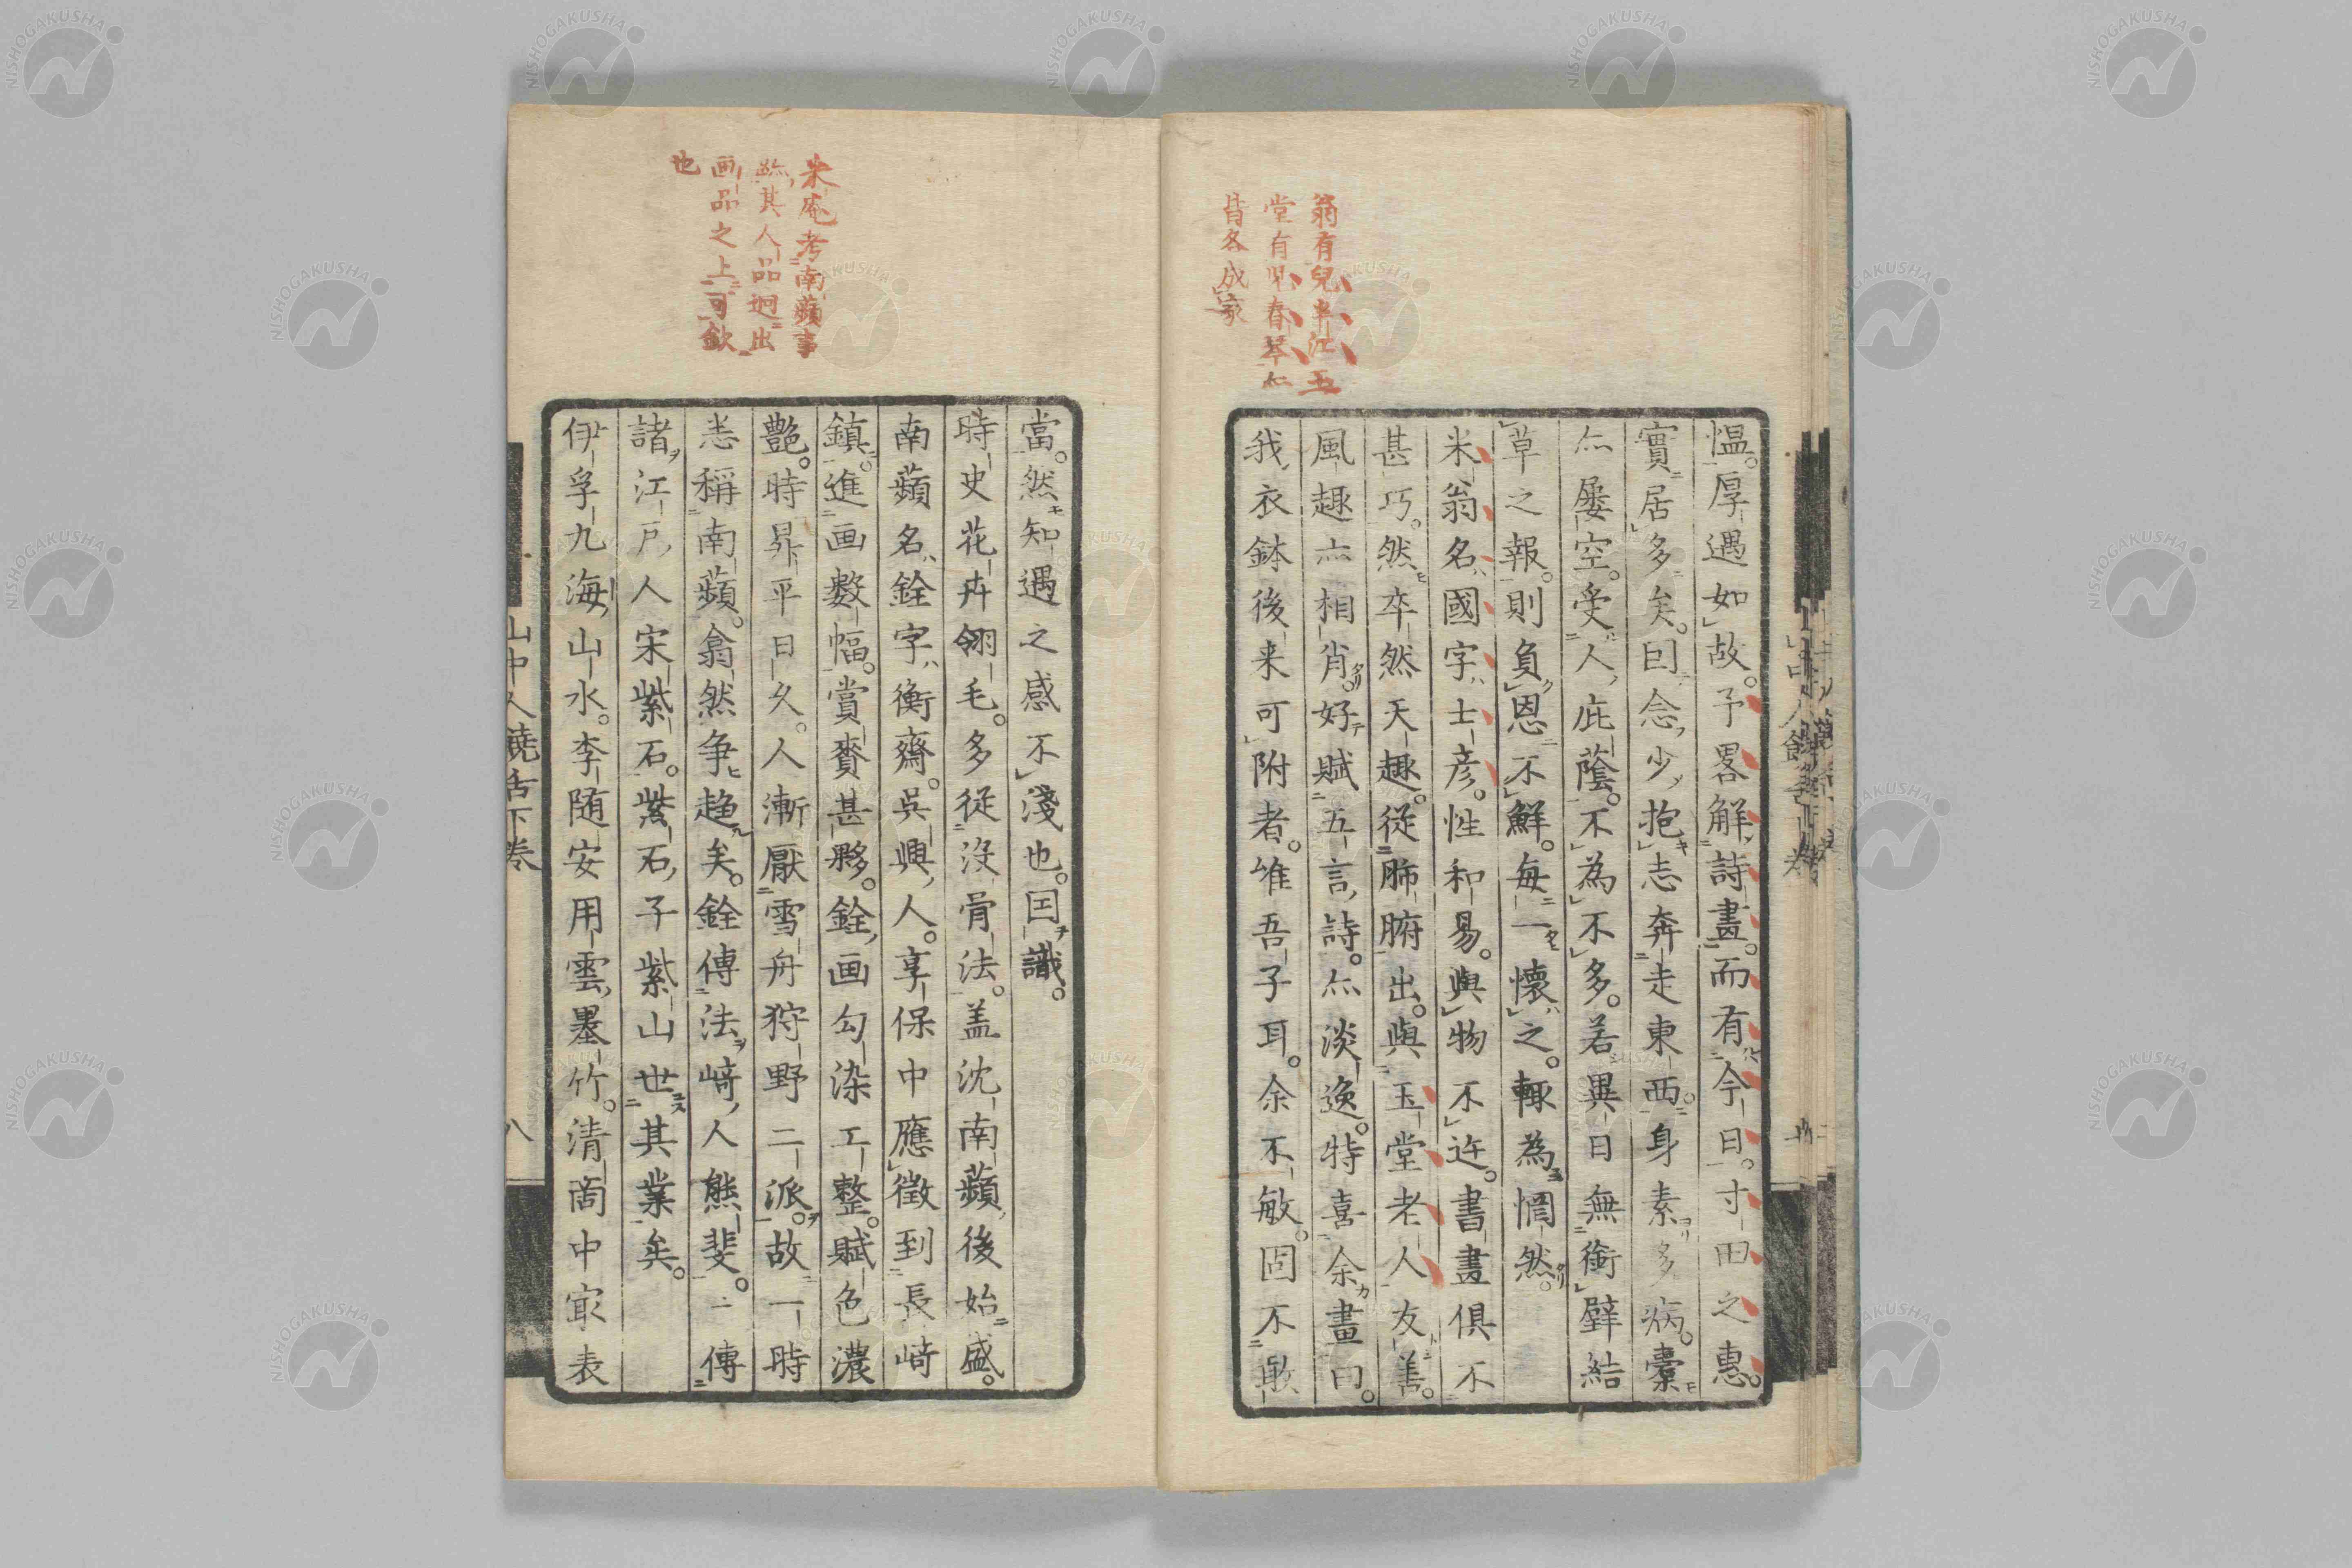 翁有兒半江玉
堂有児春琴亦
皆各成家
愠厚遇如故。予畧解詩畫。而有今日。寸田之惠。
實居多矣。囙念少抱志奔走東西。身素多病。橐
亦屡空。受人庇䕃。不為不多。若異日無銜璧結
草之報。則負恩不鮮。每一懷之。輙為惘然。
米翁名國字士彦。性和易。與物不迕。書畫俱不
甚巧。然卒然天趣。従肺腑出。與玉堂老人友善。
風趣亦相肖。好賦五言詩。亦淡逸。特喜余畫曰。
我衣鉢後来可附者。唯吾子耳。余不敏。固不敢
米庵考南蘋事
跡其人品迥出
画品之上可欽
也
當。然知遇之感不淺也。囙識。
時史花卉翎毛。多從沒骨法。盖沈南蘋後始盛。
南蘋名銓字衡齋。呉興人。享保中應徵到長﨑
鎮。進画數幅。賞賚甚夥。銓画勾染工整。賦色濃
艶。時昇平日久。人漸厭雪舟狩野二派。故一時
恙稱南蘋。翕然争趋矣。銓傳法﨑人熊斐。二傳
諸江戸人宋紫石。紫石子紫山世其業矣。
伊孚九海山水。李随安用雲墨竹。清啇中㝡表
山中人饒舌下巻
八
NISHOGAKUSHA